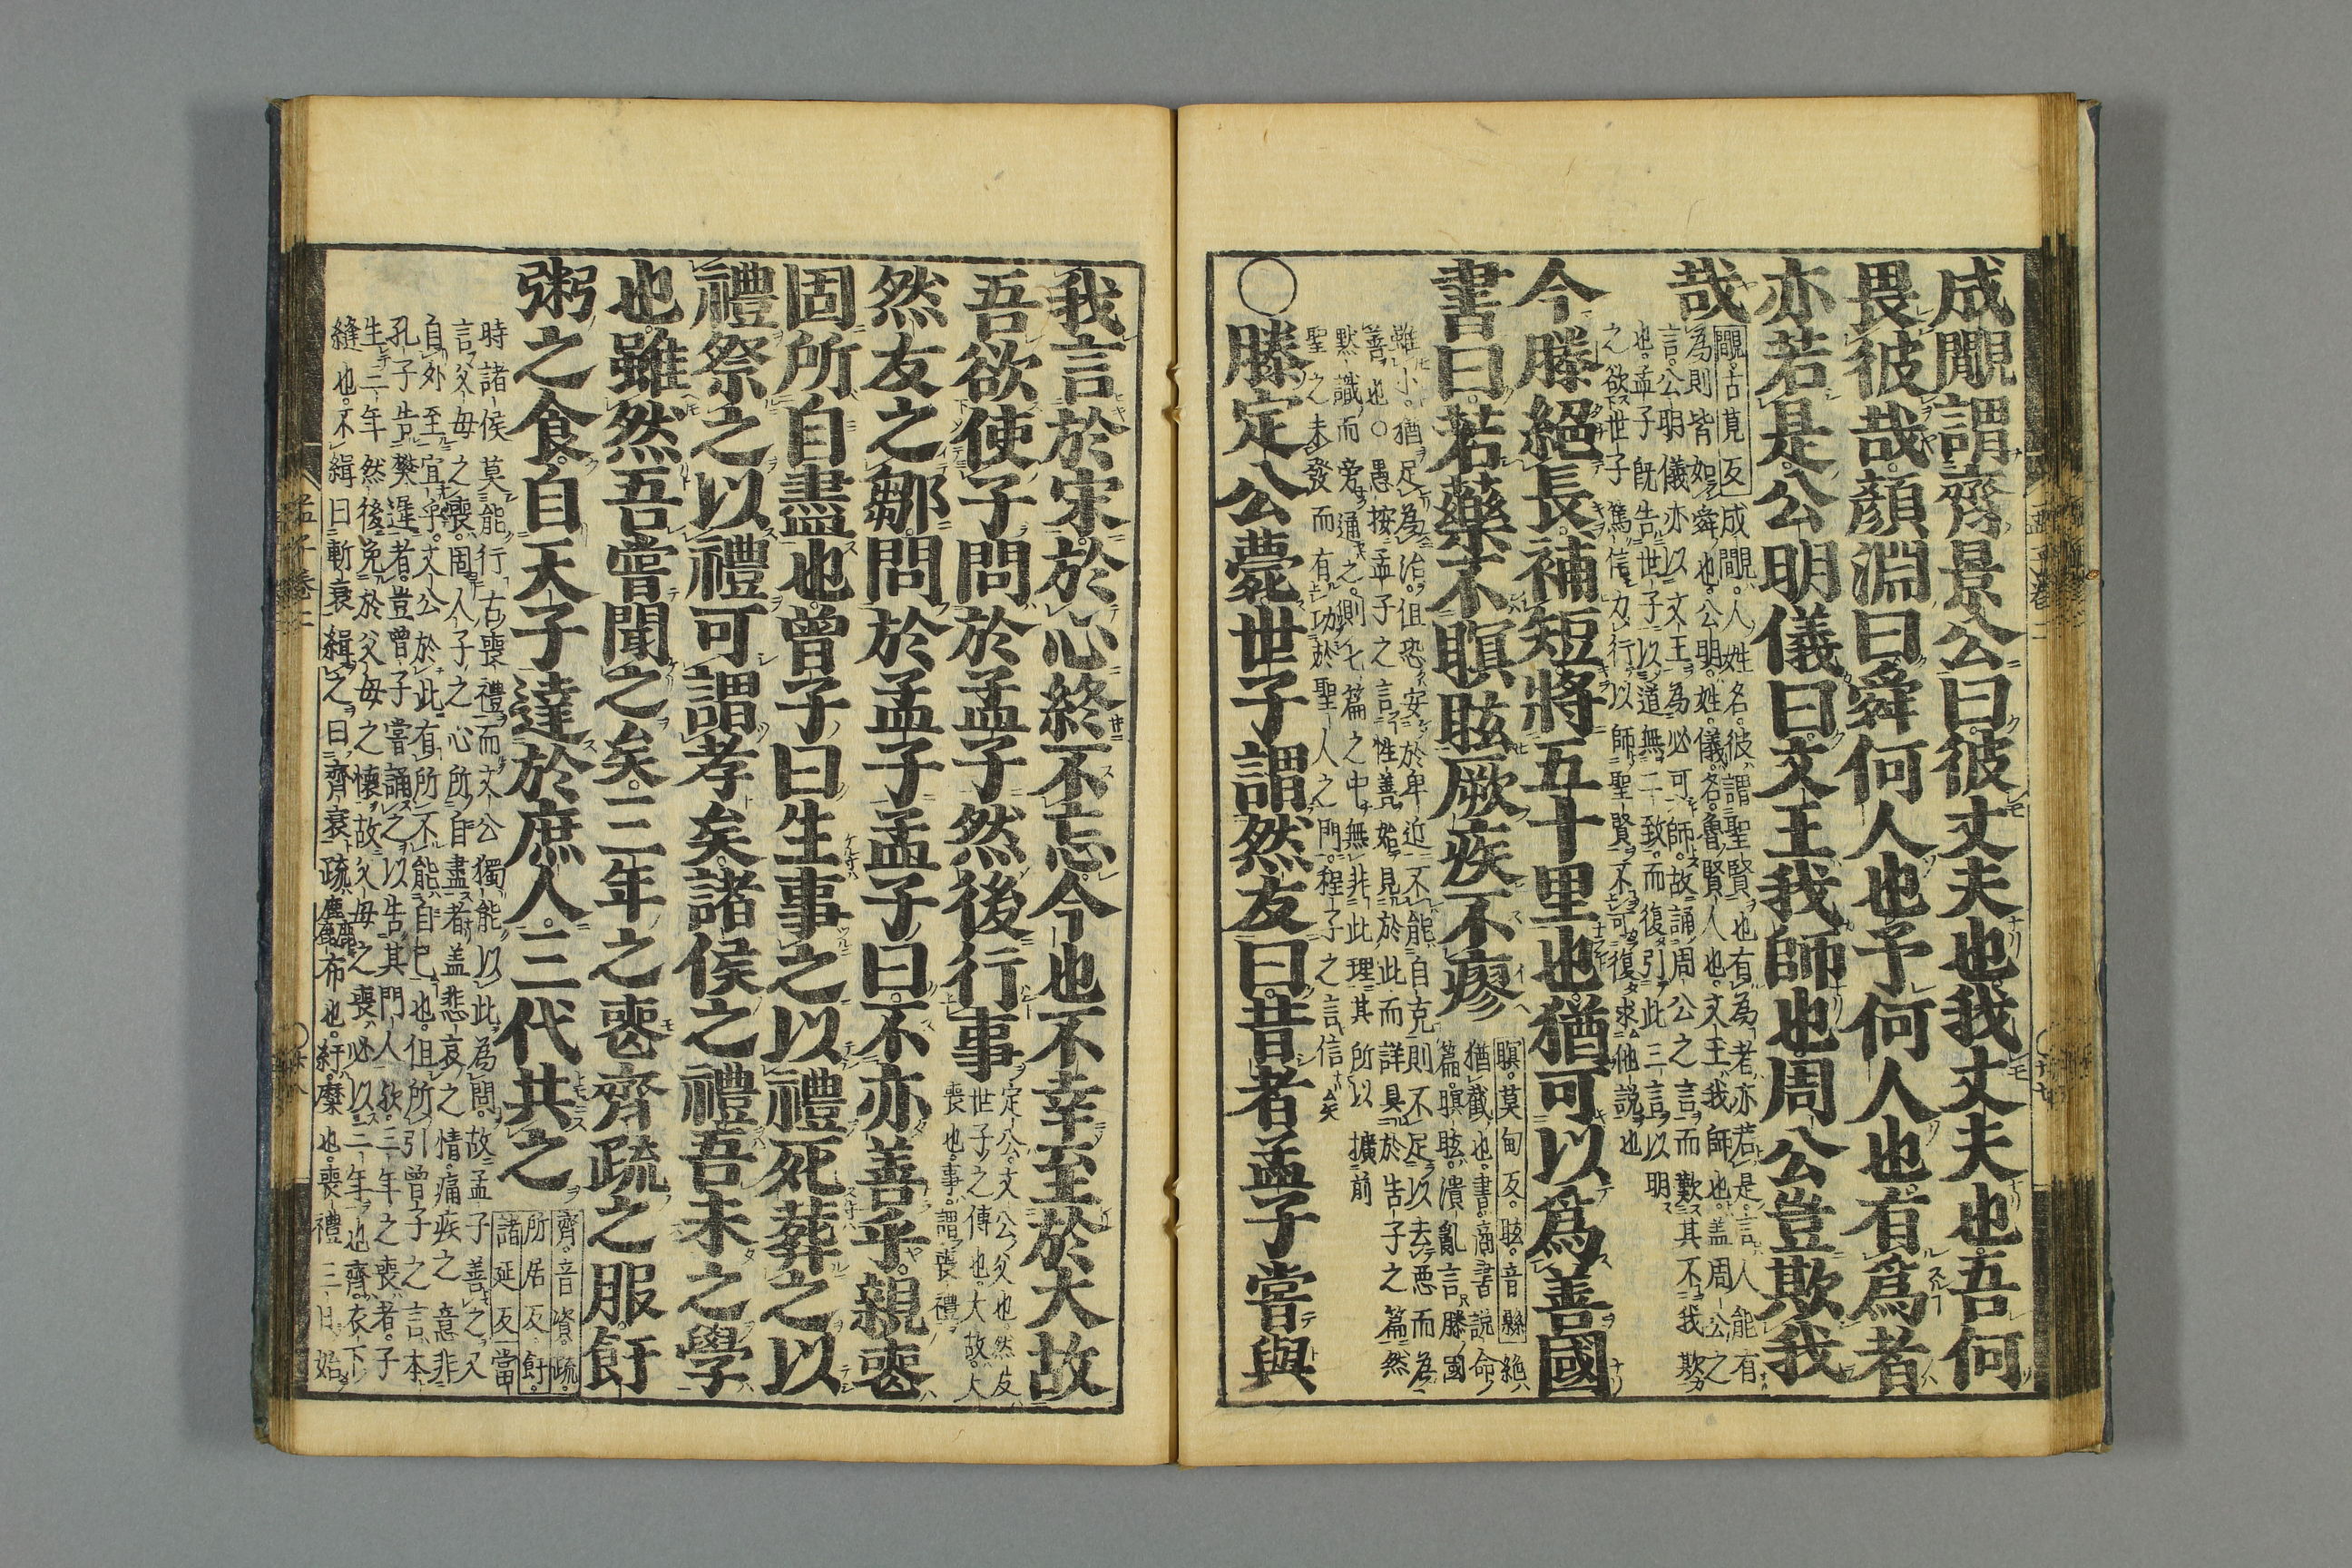 成覵謂齊景公曰彼丈夫也我丈夫也吾何
畏彼哉顏淵曰舜何人也予何人也有爲者
亦若是公明儀曰文王我師也周公豈欺我
哉
覵古莧反成覵人姓名彼謂聖賢也有為者亦若是言人能有
為則皆如舜也公明姓儀名魯賢人也文王我師也盖周公之
言公明儀亦以文王為必可師故誦周公之言而歎其不我欺
也孟子既告世子以道無二致而復引此三言以明
之欲世子篤信力行以師聖賢不可復求他説也
今滕絕長補短將五十里也猶可以爲善國
書曰若藥不瞑眩厥疾不瘳
瞑莫甸反眩音縣絶
猶截也書商書説命
篇瞑眩潰亂言滕國
雖小猶足為治但恐安於卑近不能自克則不足以去惡而為
善也○愚按孟子之言性善始見於此而詳具於告子之篇然
默識而旁通之則七篇之中無非此理其所以擴前
聖之未發而有功於聖人之門程子之言信矣
○滕定公薨世子謂然友曰昔者孟子嘗與
我言於宋於心終不忘今也不幸至於大故
吾欲使子問於孟子然後行事
定公文公父也然友
世子之傅也大故大
喪也事謂喪禮
然友之鄒問於孟子孟子曰不亦善乎親喪
固所自盡也曾子曰生事之以禮死葬之以
禮祭之以禮可謂孝矣諸侯之禮吾未之學
也雖然吾嘗聞之矣三年之喪齊疏之服飦
粥之食自天子達於庶人三代共之
齊音資疏
所居反飦
諸延反當
時諸侯莫能行古喪禮而文公獨能以此為問故孟子善之又
言父母之喪周人子之心所自盡者盖悲哀之情痛疾之意非
自外至宜乎文公於此有所不能自已也但所引曾子之言本
孔子告樊遲者豈曾子嘗誦之以告其門人歟三年之喪者子
生三年然後免於父母之懷故父母之喪必以三年也齊衣下
縫也不緝曰斬衰緝之曰齊衰疏麤布也飦糜也喪禮三日始
孟子卷二